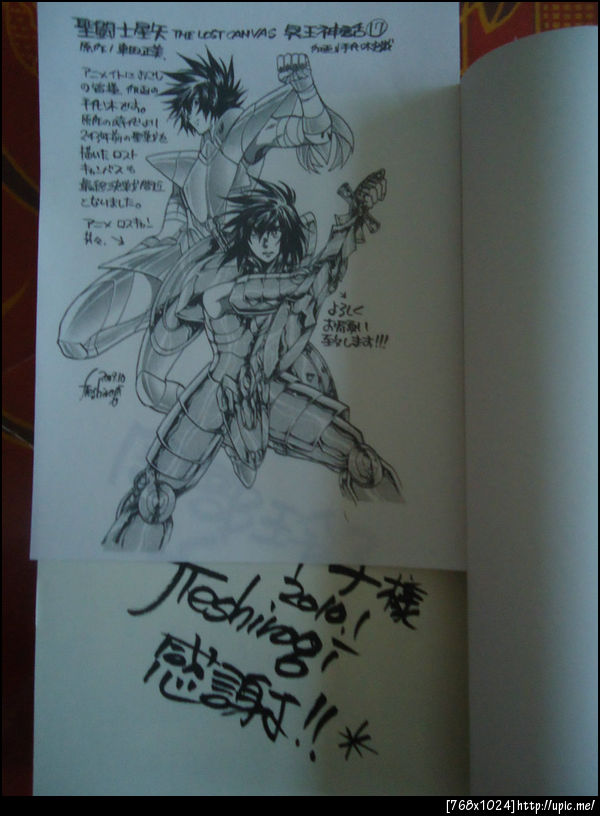 聖闘士星矢 THE LOST CANVAS 冥王神話⑰
原作/車田正美
アニメイトにおこし
の皆様、作画の
手代木です。
原作の時代より
243年前の聖戦を
描いたロスト
キャンバスも
最終決戦が間近
となりました。
アニメ ロスキャン
共々、↘
よろしく
お願い
致します!!!
2009.10
Teshirogi
様
2010.1
Teshirogi
感謝!!*
[768x1024]http://upic.me/